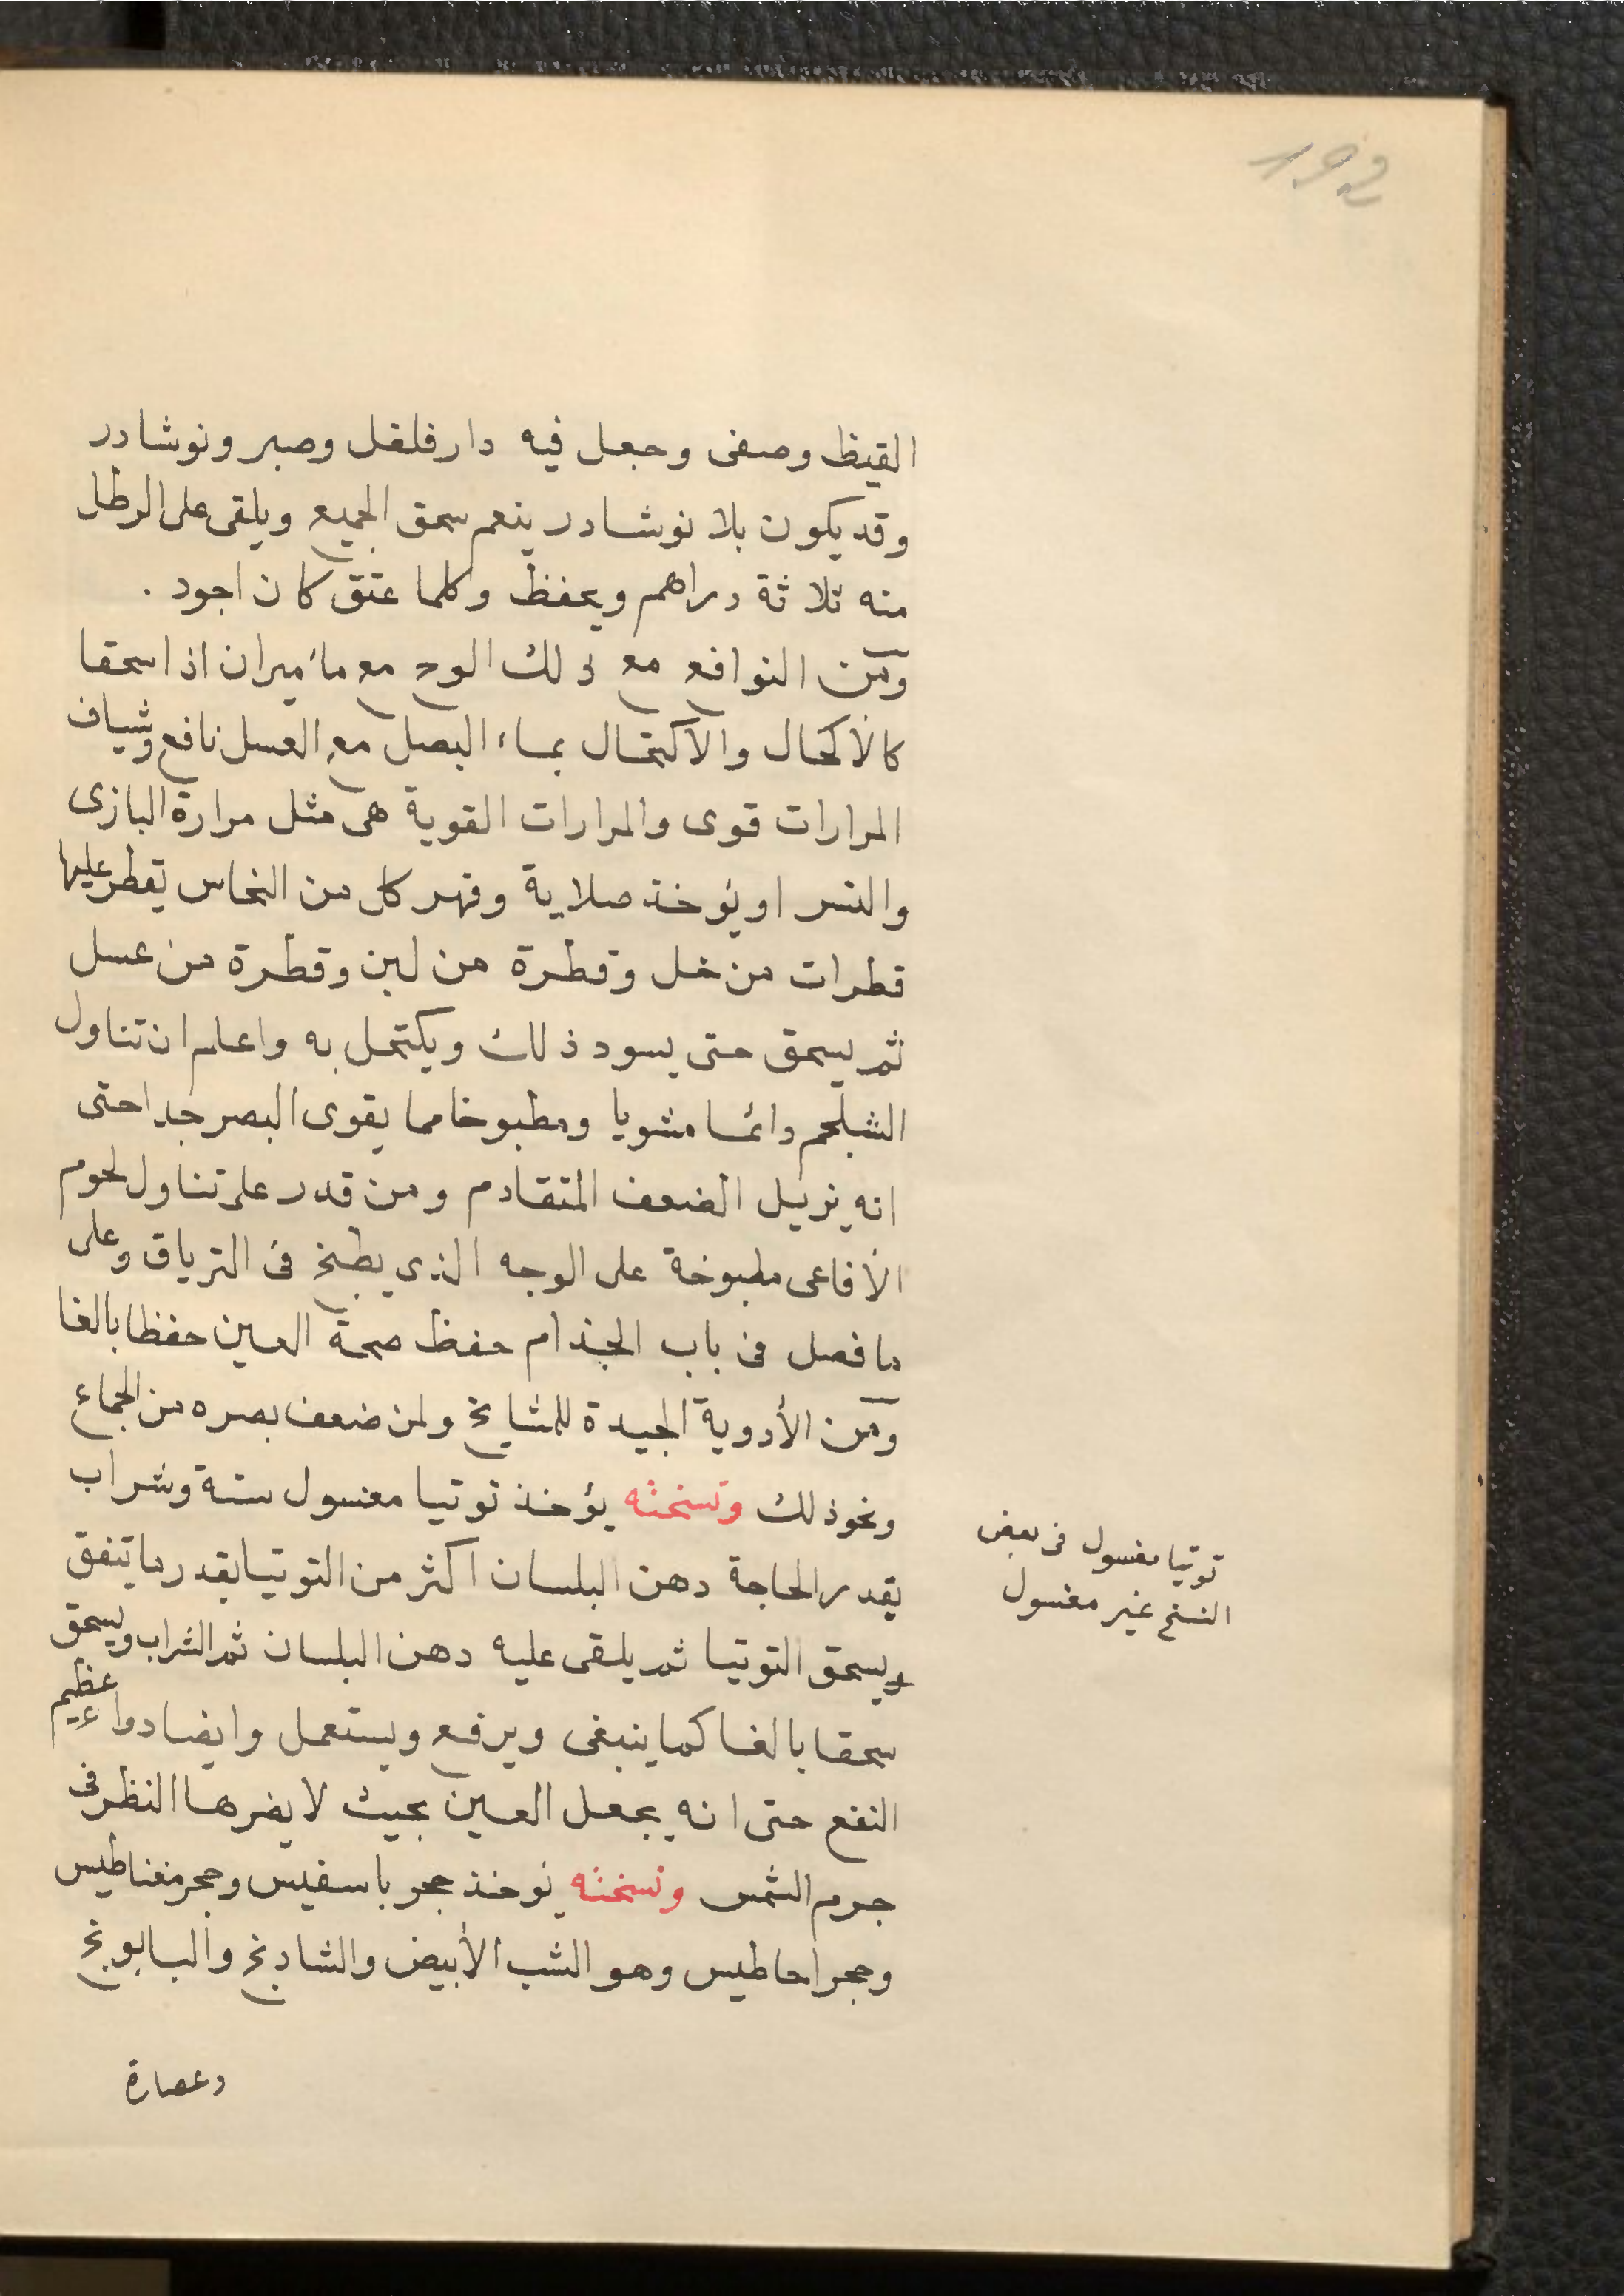 192
القيظ وصفى وجعل فيه دارفلفل وصبر ونوشادر
وقد يكون بلا نوشادر ينعم سحق الجميع ويلقى على الرطل
منه ثلاثة دراهم ويحفظ وكلما عتق كان اجود .
ومن النوافع مع ذلك الوج مع مائميران اذا سحقا
كالأكحال والأكتحال بماء البصل مع العسل نافع وشياف
المرارات قوى والمرارات القوية هى مثل مرارة البازى
والنسر او يؤخذ صلاية وفهر كل من النحاس يقطر عليها
قطرات من خل وقطرة من لبن وقطرة من عسل
ثم يسحق حتى يسود ذلك ويكتحل به واعلم ان تناول
الشلجم دائما مشويا ومطبوخا مما يقوى البصر جدا حتى
انه يزيل الضعف المتقادم ومن قدر على تناول لحوم
الأفاعى مطبوخة على الوجه الذى يطبخ فى الترياق وعلى
ما فصل فى باب الجذام حفظ صحة العين حفظا بالغا
ومن الأدوية الجيدة للمشايخ ولمن ضعف بصره من الجماع
ونحو ذلك ونسخته يؤخذ توتيا مغسول ستة وشراب
بقدر الحاجة دهن البلسان اكثر من التوتيا بقدر ما يتفق
ويسحق التوتيا ثم يلقى عليه دهن البلسان ثم الشراب ويسحق
سحقا بالغا كما ينبغى ويرفع ويستعمل وايضا دواء عظيم
النفع حتى انه يجعل العين بحيث لا يضرها النظر فى
جرم الشمس ونسخته يؤخذ حجر باسفيس وحجر مغناطيس
وحجر احاطيس وهو الشب الأبيض والشادنج والبابونج
وعصارة
توتيا مغسول فى بعض
النسخ غير مغسول